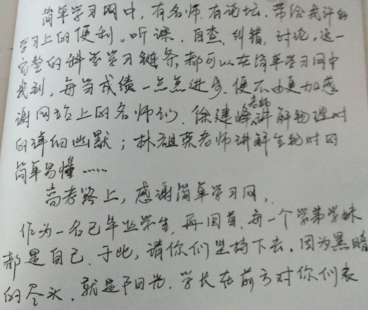 简单学习网中，有名师，有论坛，带给我许多
学习上的便利。听课、自查、纠错、讨论，这一
完整的科学学习链条，都可以在简单学习网中
找到，每当成绩一点点进步，便不由更加感
谢网站上的名师们，徐建烽老师讲解物理时
的详细幽默；朴祖荣老师讲解生物时的
简单易懂……
高考路上，感谢简单学习网，
作为一名已毕业学生，再回首，每一个学弟学妹
都是自己，于此，请你们坚持下去，因为黑暗
的尽头，就是阳光，学长在前方对你们表